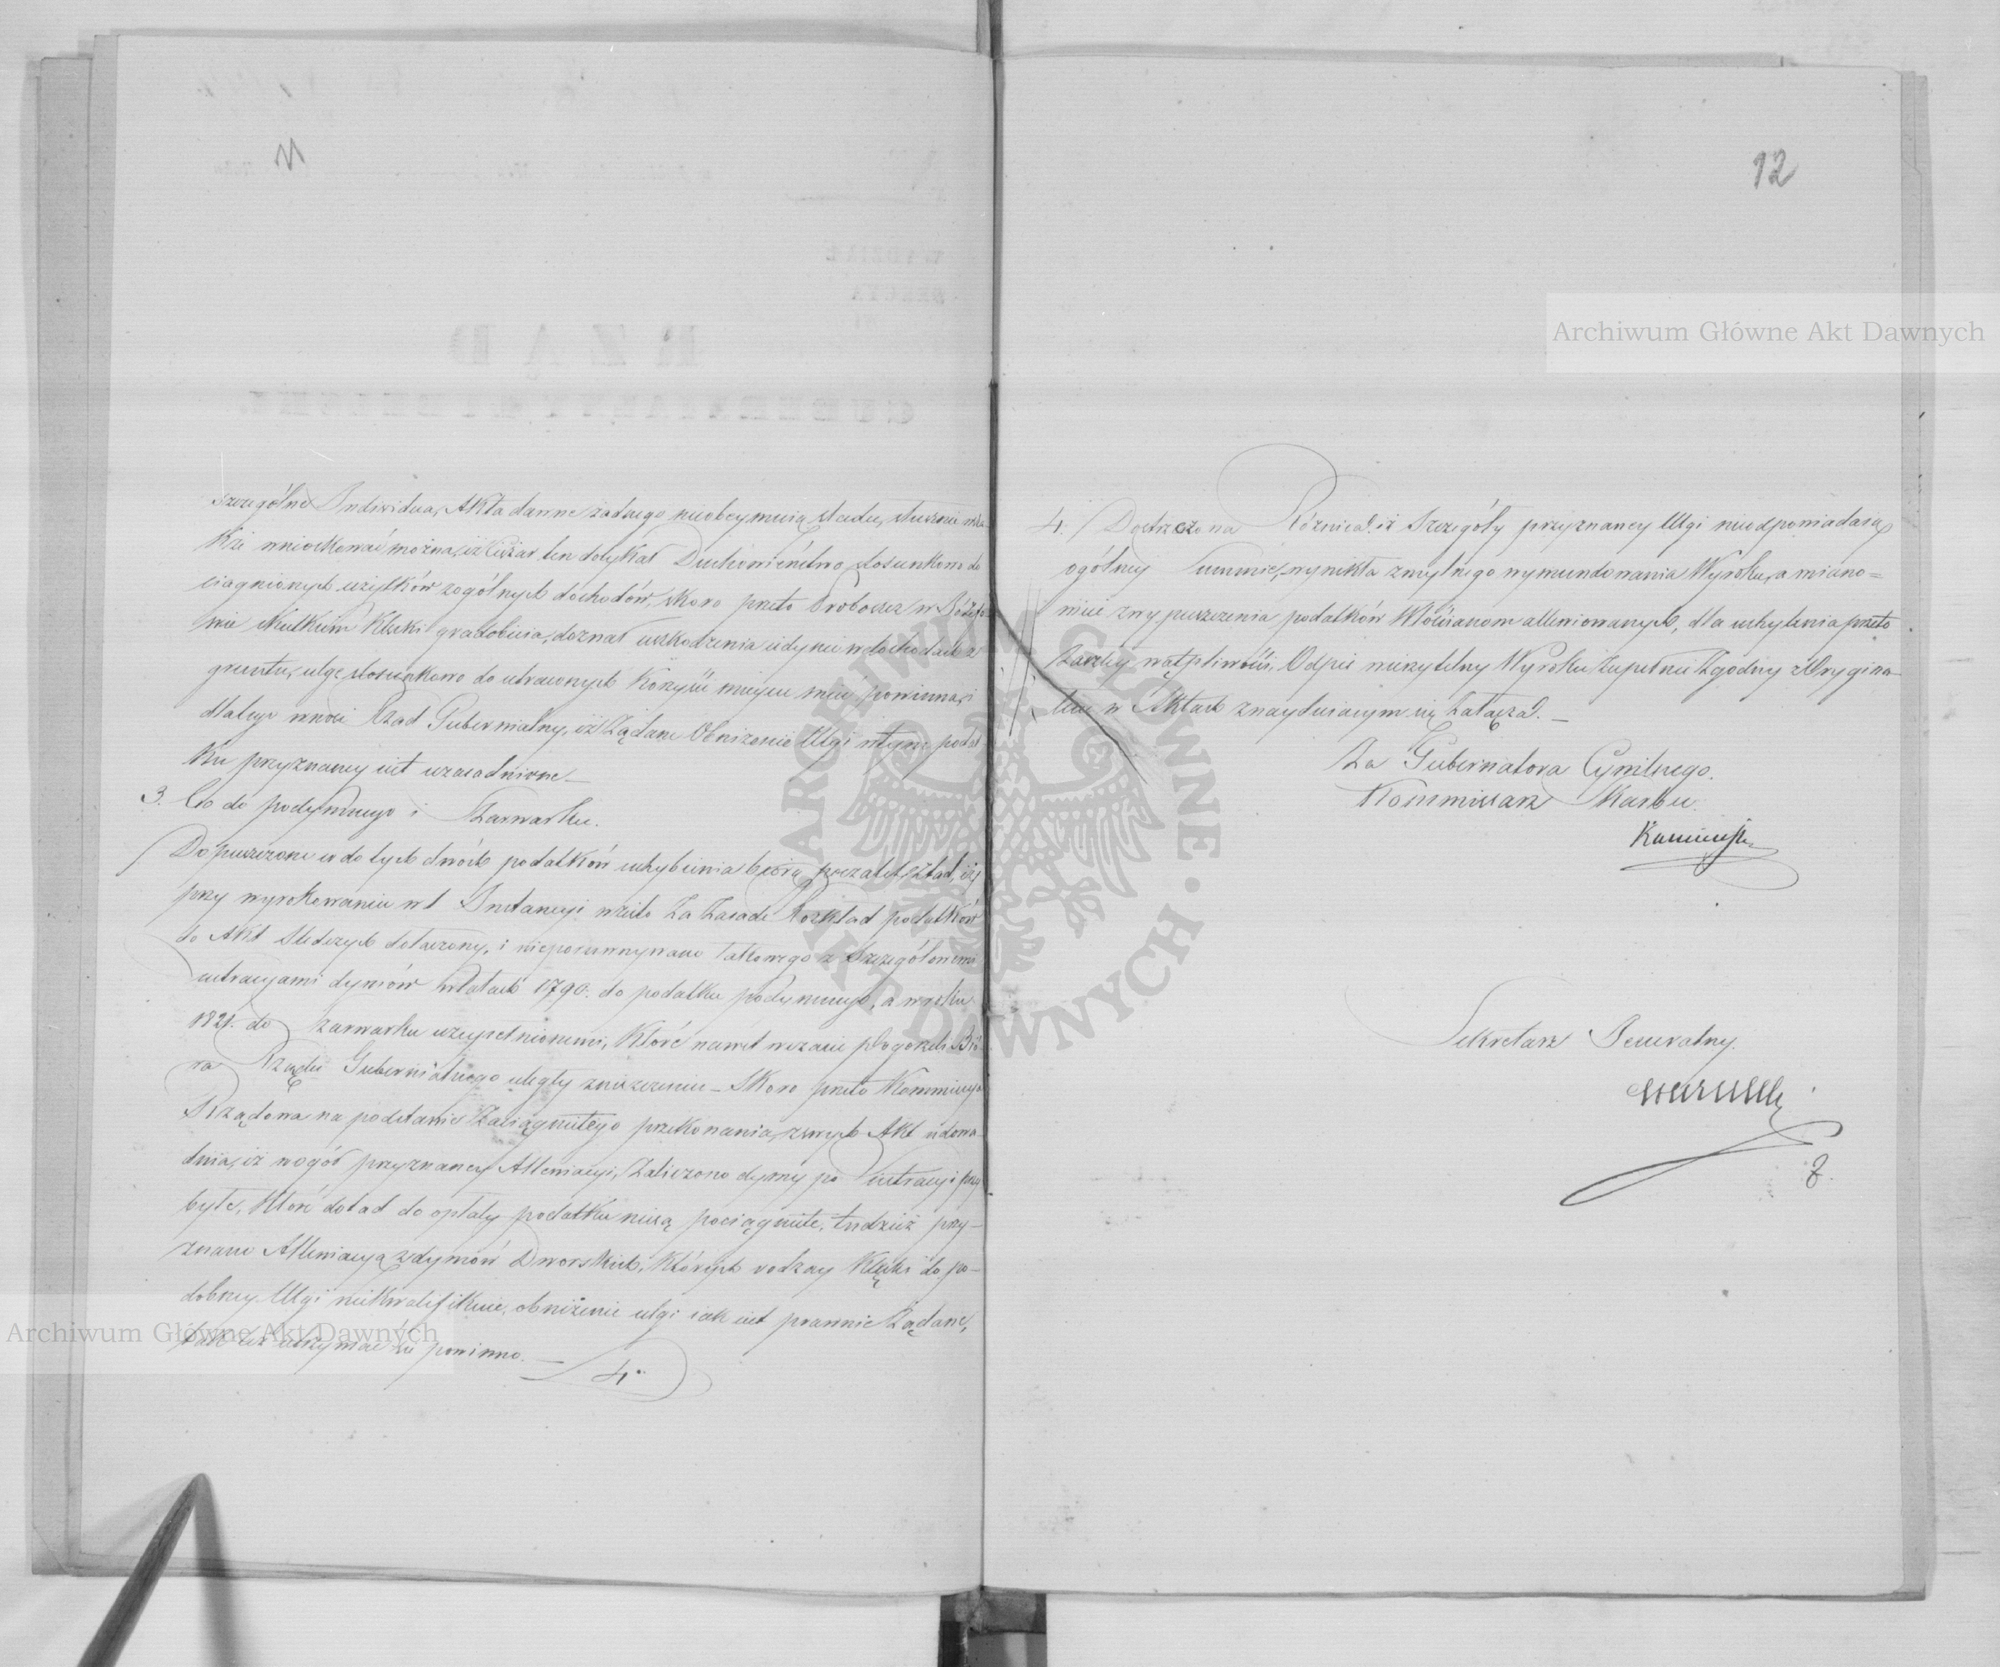 szczególne Individua, Akta danne żadnego nieobeymuią śladu, słusznie wsza
kże wnioskować można, iż Ciężar ten dotykał Duchowieństwo stosunkowo do
ciągnionych użytków zogólnych dochodów, skoro przeto Proboszcz w
wie skutkiem Klęski gradobicia, doznał uszkodzenia iedynie w dochodach z
gruntu, ulgę stosunkowo do utraconych Korzyści mieysce mieć powinna, i
dlatego wnosi Rząd Gubernialny, iż żądane Obniżenie Ulgi wtym podat
ku przyznaney iest uzasadnione_
3. Co do podymnego i Szarwarku.
Dopuszczone w do tych dwóch podatków uchybienia biorą początek ztąd, iż
przy wyrokowaniu w I Instancyi wzięto Za Zasadę Rozkład podatków
do Akt Śledczych dołączony, i nieporównywano takowego z Szczegółowemi
lustracyami dymów w latach 1790. do podatku podymnego, a w roku
1821. do szarwarku uzupełnionemi, Które nawet wczasie Pogorzeli Bió-
ra Rządu Gubernialnego uległy zniszczeniu_ Skoro przeto Kommissya
Rządowa na podstawie Zaciągniętego przekonania, zswych Akt udowa-
dnia, iż wogół przyznaney Allewiacyi, Zaliczono dymy po Lustracyi przy
byłe, Które dotąd do opłaty podatku niesą pociągnięte, tudzież przy-
znano Allewiacyą zdymów Dworskich, Których rodzay Klęski do po-
dobney Ulgi niekwalifikuie, obniżenie ulgi iak iest prawnie Żądane,
tak też utrzymać się powinno. _
4.
12
4. Dostrzeżona Różnica, iż Szczegóły przyznaney Ulgi nieodpowiadaią
ogólney Summie, wynikła zmylnego wymundowania Wyroku, a miano=
wicie zwypuszczenia podatków Włościanom allewiowanych, dla uchylenia przeto
wszelkiey wątpliwości, Odpis nieczytelny Wyroku Zupełnie Zgodny zOrygina-
łem w Aktach znayduiącym się Załącza. _
Za Gubernatora Cywilnego.
Kommissarz Skarbu.
Sekretarz Jeneralny.
Archiwum Główne Akt Dawnych
Archiwum Główne Akt Dawnych
ARCHIWUM GŁÓWNE AKT DAWNYCH